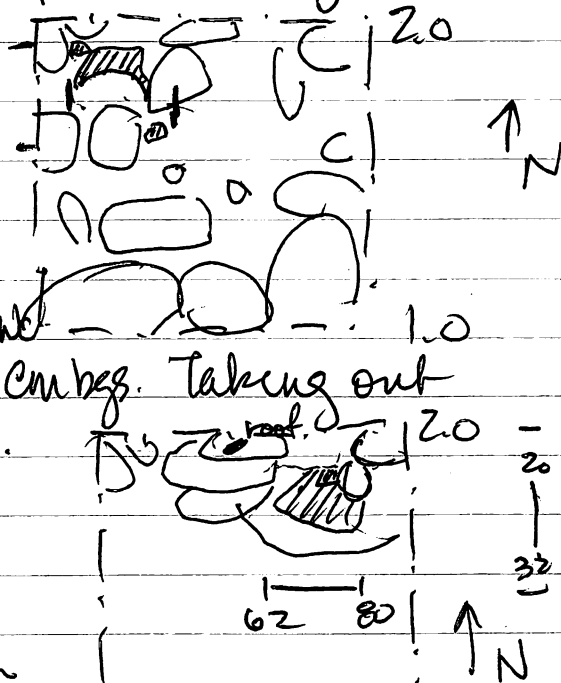 2.0
N
1.0
cmbgs. Taking out
root. 2.0
20
32
62 80
N